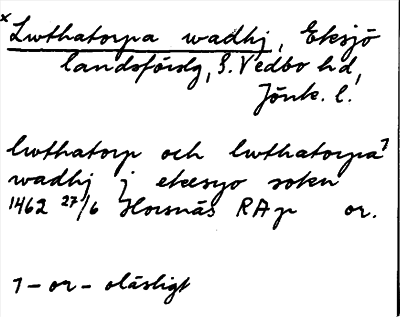 x Lwthatorpa wadhj, Eksjö
landsförsg, S. Vedbo hd,
Jönk. l.
lwthatorp och lwthatorpa⁷
wadhj j ekesyo sokn
1462 27/6 Horsnäs RAp or.
7 - or - oläsligt